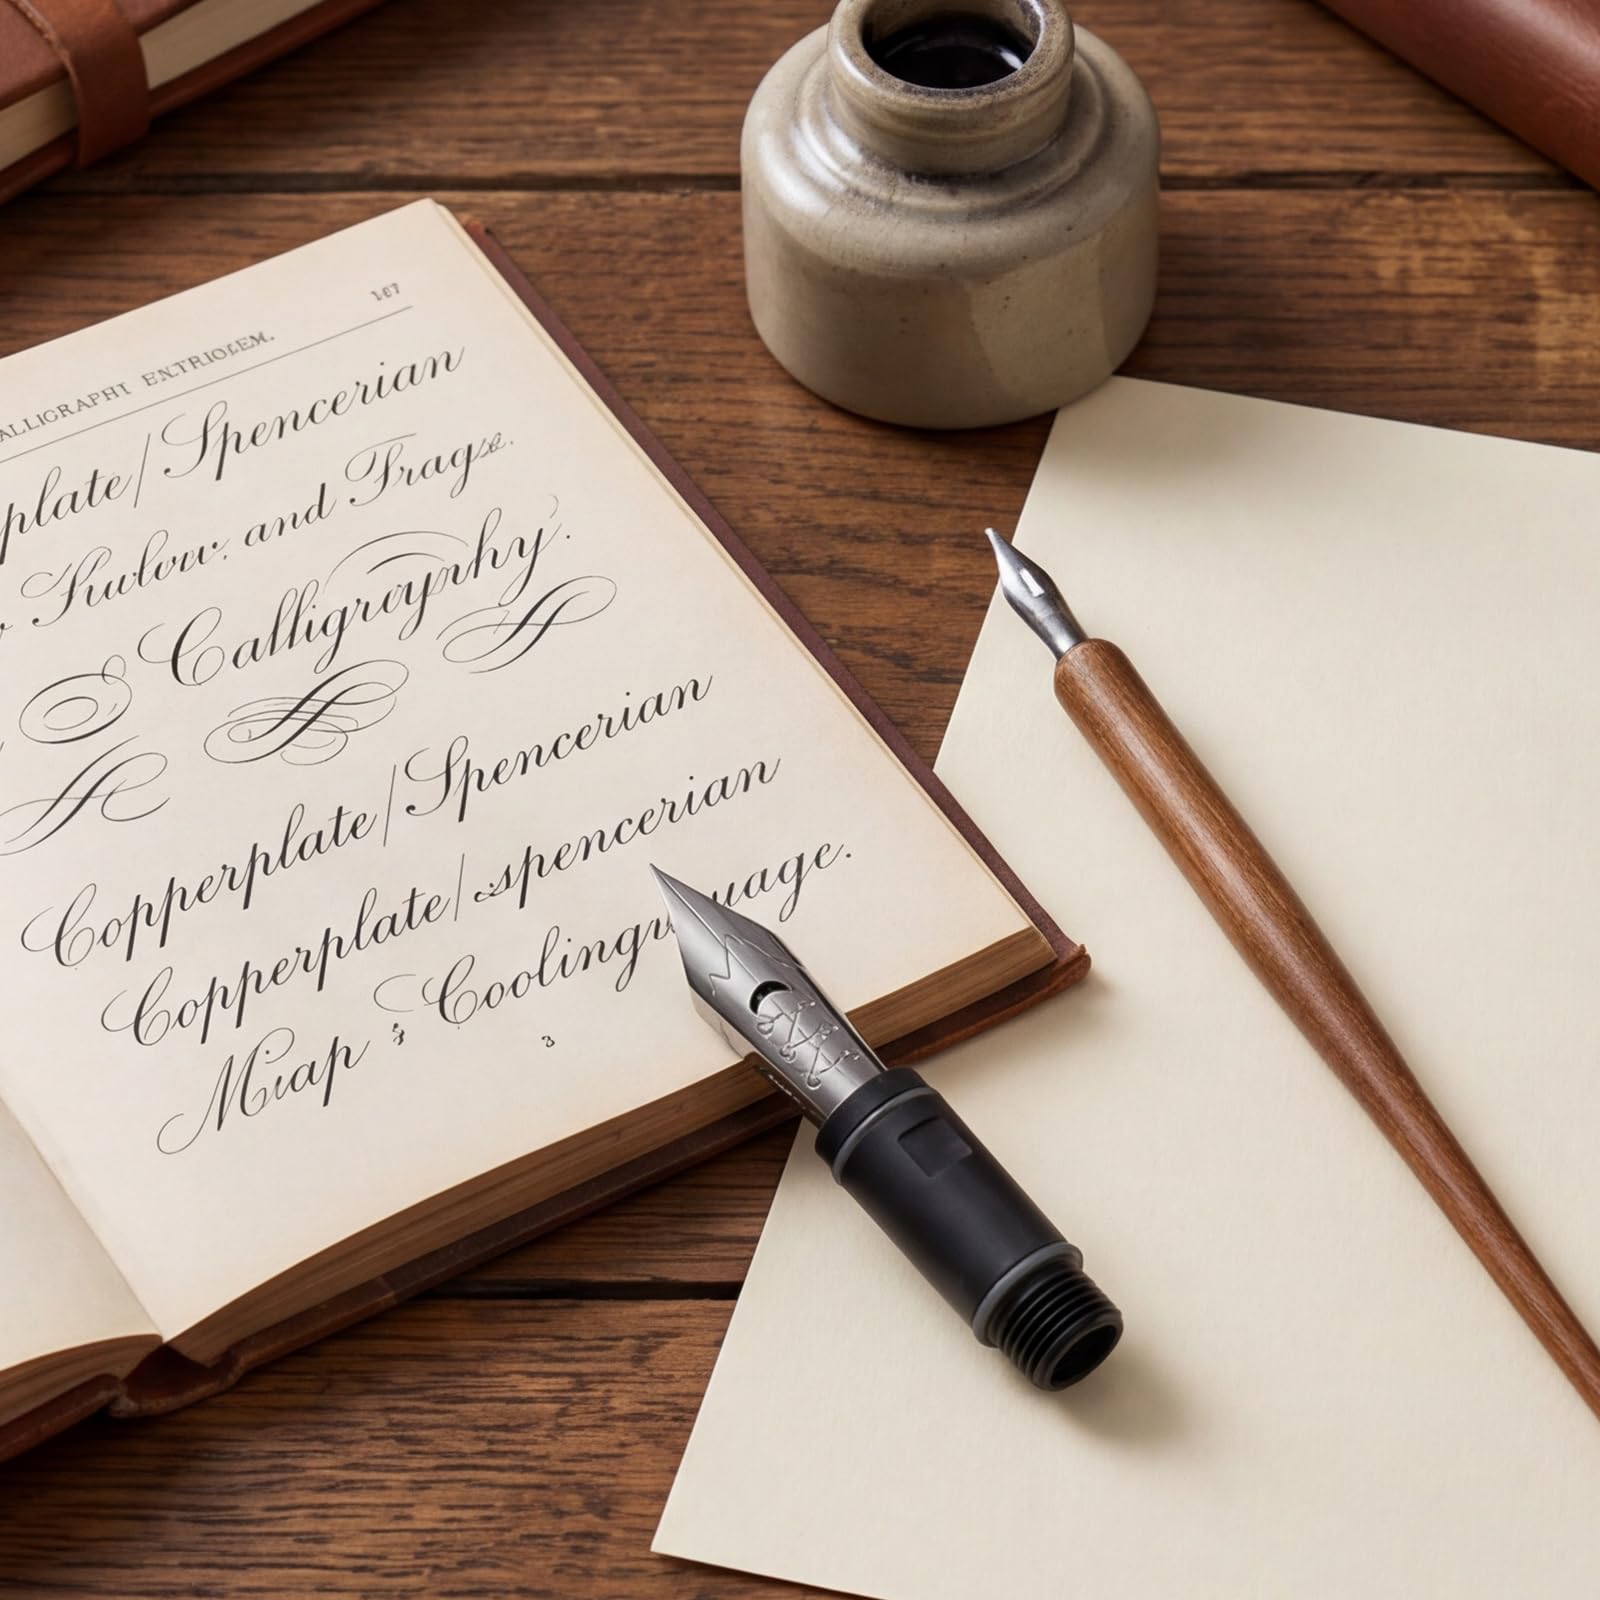 167
ALLIGRAPHI ENTRIOLEM.
plate/Spencerian
and Frags.
Calligroyrhy.
Copperplate/Spencerian
Copperplate/spencerian
Miap & Coolinguage.
3